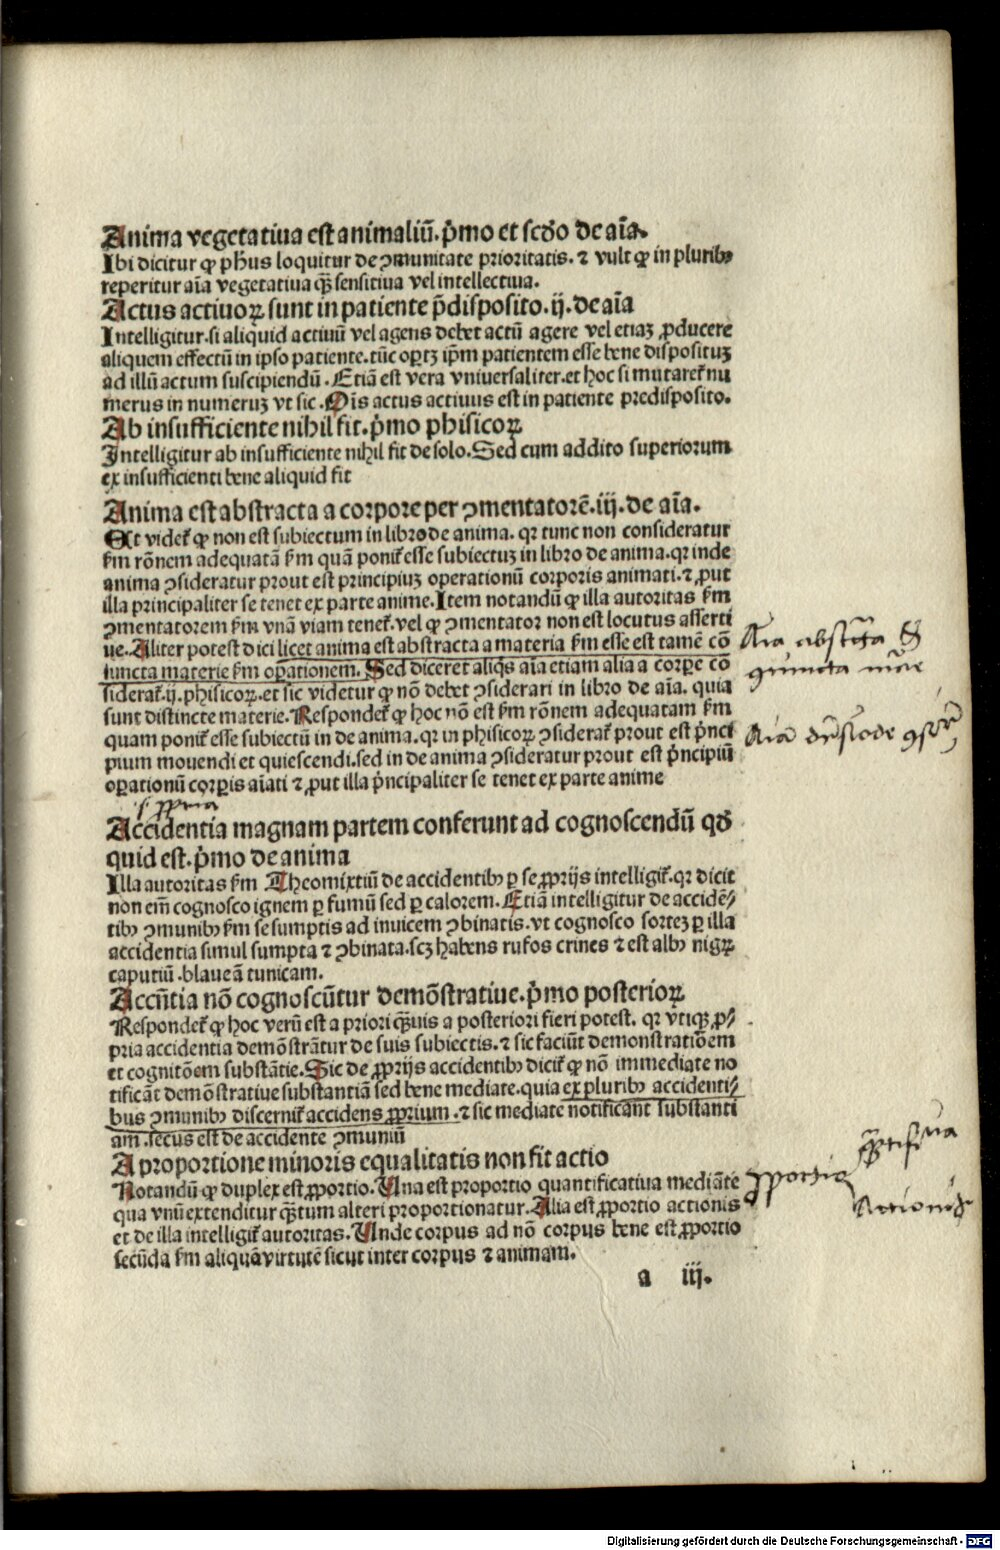 Anima vegetatiua est animaliū. p̄mo et scd̄o de aīa.
Ibi dicitur ꝙ ph̄us loquitur de ꝯmunitate prioritatis. ⁊ vult ꝙ in pluribꝰ
reperitur aīa vegetatiua q̄ꝫ sensitiua vel intellectiua.
Actus actiuoꝝ sunt in patiente p̄disposito. ij. de aīa
Intelligitur. si aliquid actiuū vel agens debet actū agere vel etiaꝫ ꝓducere
aliquem effectū in ipso patiente. tūc oꝑtꝫ ip̄m patientem esse bene disposituꝫ
ad illū actum suscipiendū. Etiā est vera vniuersaliter. et hoc si mutaret᷑ nu
merus in numeruꝫ vt sic. Oīs actus actiuus est in patiente predisposito.
Ab insufficiente nihil fit. p̄mo phisicoꝝ
Intelligitur ab insufficiente nihil fit de solo. Sed cum addito superiorum
ex insufficienti bene aliquid fit
Anima est abstracta a corpore per ꝯmentatorē. iij. de aīa.
Et videt᷑ ꝙ non est subiectum in libro de anima. qr tunc non consideratur
ẜm rōnem adequatā ẜm quā ponit᷑ esse subiectuꝫ in libro de anima. qr inde
anima ꝯsideratur prout est principiuꝫ operationū corporis animati. ⁊ ꝓut
illa principaliter se tenet ex parte anime. Item notandū ꝙ illa autoritas ẜm
ꝯmentatorem ẜm vnā viam tenet᷑. vel ꝙ ꝯmentator non est locutus asserti
ue. Aliter potest dici licet anima est abstracta a materia ẜm esse est tamē cō
iuncta materie ẜm oꝑationem. Sed diceret aliq̄s aīa etiam alia a corꝑe cō
siderat᷑. ij. phisicoꝝ. et sic videtur ꝙ nō debet ꝯsiderari in libro de aīa. quia
sunt distincte materie. Respondet᷑ ꝙ hoc nō est ẜm rōnem adequatam ẜm
quam ponit᷑ esse subiectū in de anima. qr in phisicoꝝ ꝯsiderat᷑ prout est p̄nci
pium mouendi et quiescendi. sed in de anima ꝯsideratur prout est p̄ncipiū
oꝑationū corꝑis aīati ⁊ ꝓut illa p̄ncipaliter se tenet ex parte anime
Accidentia magnam partem conferunt ad cognoscendū qd̄
quid est. p̄mo de anima
Illa autoritas ẜm Theomixtiū de accidentibꝰ ꝑ se ꝓprijs intelligit᷑. qr dicit
non em̄ cognosco ignem ꝑ fumū sed ꝑ calorem. Etiā intelligitur de accidē⸗
tibꝰ ꝯmunibꝰ ẜm se sumptis ad inuicem ꝯbinatis. vt cognosco sortez ꝑ illa
accidentia simul sumpta ⁊ ꝯbinata. scꝫ habens rufos crines ⁊ est albꝰ nigꝝ
caputiū. blaueā tunicam.
Accn̄tia nō cognoscūtur demōstratiue. p̄mo posterioꝝ
Respondet᷑ ꝙ hoc verū est a priori q̄ꝫuis a posteriori fieri potest. qr vtiqꝫ ꝓ⸗
pria accidentia demōstrātur de suis subiectis. ⁊ sic faciūt demonstratiōem
et cognitōem substātie. Sic de ꝓprijs accidentibꝰ dicit᷑ ꝙ nō immediate no
tificāt demōstratiue substantiā sed bene mediate. quia ex pluribꝰ accidenti⸗
bus ꝯmunibꝰ discernit᷑ accidens ꝓprium. ⁊ sic mediate notificant substanti
am. secus est de accidente ꝯmuniū
A proportione minoris equalitatis non fit actio
Notandū ꝙ duplex est ꝓportio. Una est proportio quantificatiua mediāte
qua vnū extenditur q̄ꝫtum alteri proportionatur. Alia est ꝓportio actionis
et de illa intelligit᷑ autoritas. Unde corpus ad nō corpus bene est ꝓportio
secūda ẜm aliquā virtutē sicut inter corpus ⁊ animam.
a iij.
Aīa abstracta &
ꝓportio
Actionis
Digitalisierung gefördert durch die Deutsche Forschungsgemeinschaft - DFG